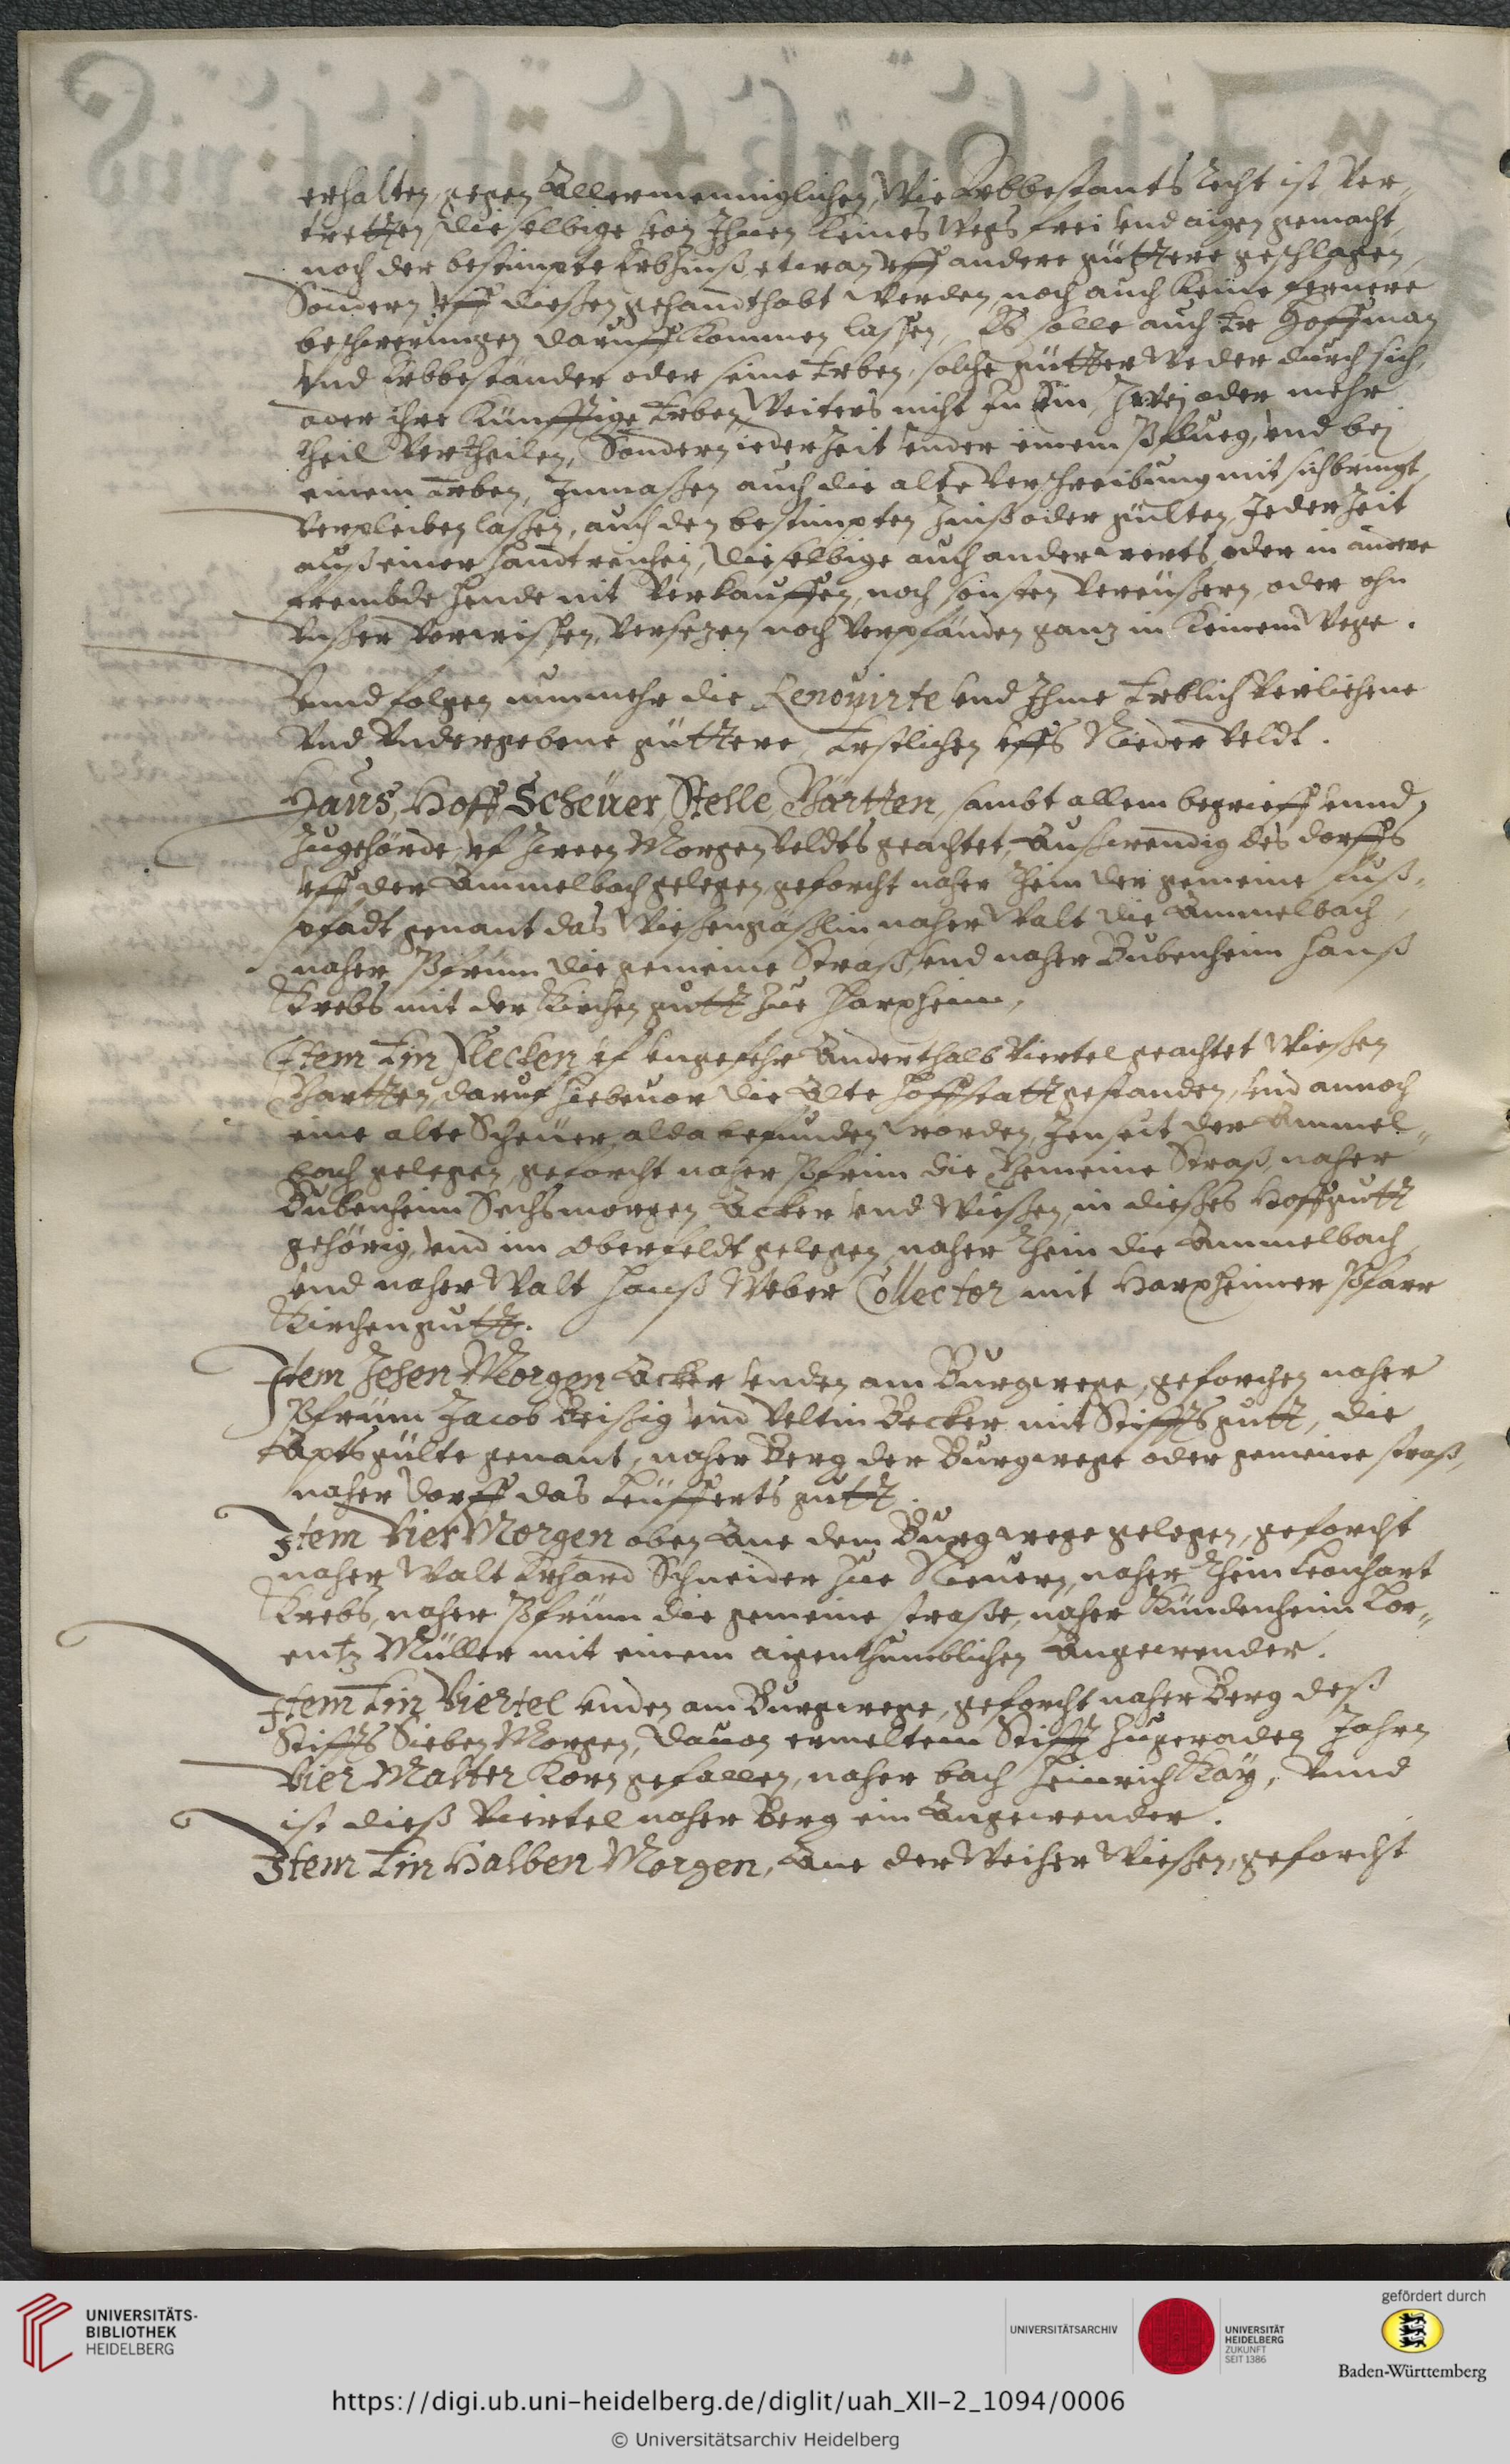 erhalten, gegen Allermenniglichen, Wie Erbbestants recht ist Ver-
tretten, dieselbige von Ihnen keines Wegs frei vnd aigen gemacht,
noch der bestimpte Erbzinß etwan vff andere güttere geschlagen,
Sondern vff dießen gehandthabt werden, noch auch keine fernere
beschwerungen daruff kommen lassen, Es solle auch Er Hoffman
vnd Erbbeständer oder seine Erben, solche gütter Weder durch sich,
oder ihre künfftige Erben Weiters nicht in Ein, Zwej oder mehr
theil Vertheilen, Sondern iederzeit vnder einem Pflueg, vnd bej
einem Erben, Inmaßen auch die alte Verschreibung mit sich bringt,
Verpleiben laßen, auch den bestimpten Zinß oder gülten Jederzeit
auß einer handt reichen, dieselbige auch anderwerts, oder in andere
frembde hende nit Verkauffen, noch sonsten Vereüßern, oder ohn
Vnßer Vorwissen, Versezen noch Verpfänden ganz in keinem Wege.
Vnnd folgen nunmehr die Renovirte vnd Ihme Erblich Verliehene
Vnd Vndergebene güttere, Erstlichen vffs Nieder Veldt.
Haus, Hoff Scheuer, Stelle, Gärtten, sambt allem begrieff vnnd
Zugehörde, vf Zween Morgen Veldts geachtet, Außwendig des dorffs
vff der Ammelbach gelegen, geforcht naher Rhein der gemeine fuß-
pfadt genant das Wießengäßlin, naher Walt die Ammelbach,
naher Pfrimm die gemeine Straß, vnd naher Bubenheim Hanß
Krebs mit der Kirchen gutt Zue Harxheim.
Item Ein Flecken vf vngefehr Anderthalb Viertel geachtet Wießen
Gartten, daruf hiebeuor die Alte Hoffstatt gestanden, vnd annoch
eine alte Scheuer alda befunden worden, Jenseit der Ammel-
bach gelegen, geforcht naher Pfrim die Gemeine Straß, naher
Bubenheim Sechs morgen Acker vnd Wießen in dießes Hoffgutt
gehörig, vnd im Oberfeldt gelegen, naher Rhein die Ammelbach,
vnd naher Walt Hanß Weber Collector mit Harxheimer Pfarr
Kirchengutt.
Item Zehen Morgen Acker vnden am Burgwege, geforchen naher
Pfrimm Jacob Beissig vnd Veltin Becker mit Stiffts gutt, die
Apts gülte genant, naher Berg der Burgwege oder gemeine straß,
naher dorff das gutt.
Item Vier Morgen oben Ane dem Burgwege gelegen, geforcht
naher Walt Erhard Schneider Zue Niuern, naher Rhein Leonhart
Krebs, naher Pfrimm die gemeine straße, naher Kindenheim Lor-
entz Müller mit einem aigenthumblichen Angewender.
Item Ein Viertel vnden am Burgwege, geforcht naher Berg deß
Stiffts Sieben Morgen, dauon ermeltem Stifft Zugeraden Jahrn
Vier Malter Korn gefallen, naher bach Heinrich Kay, Vnnd
ist dieß Viertel naher Berg ein Angewender.
Item Ein Halben Morgen, Ane der Weiher Wießen, geforcht
UNIVERSITÄTS-
BIBLIOTHEK
HEIDELBERG
UNIVERSITÄTSARCHIV
UNIVERSITÄT
HEIDELBERG
ZUKUNFT
SEIT 1386
gefördert durch
Baden-Württemberg
https://digi.ub.uni-heidelberg.de/diglit/uah_XII-2_1094/0006
© Universitätsarchiv Heidelberg